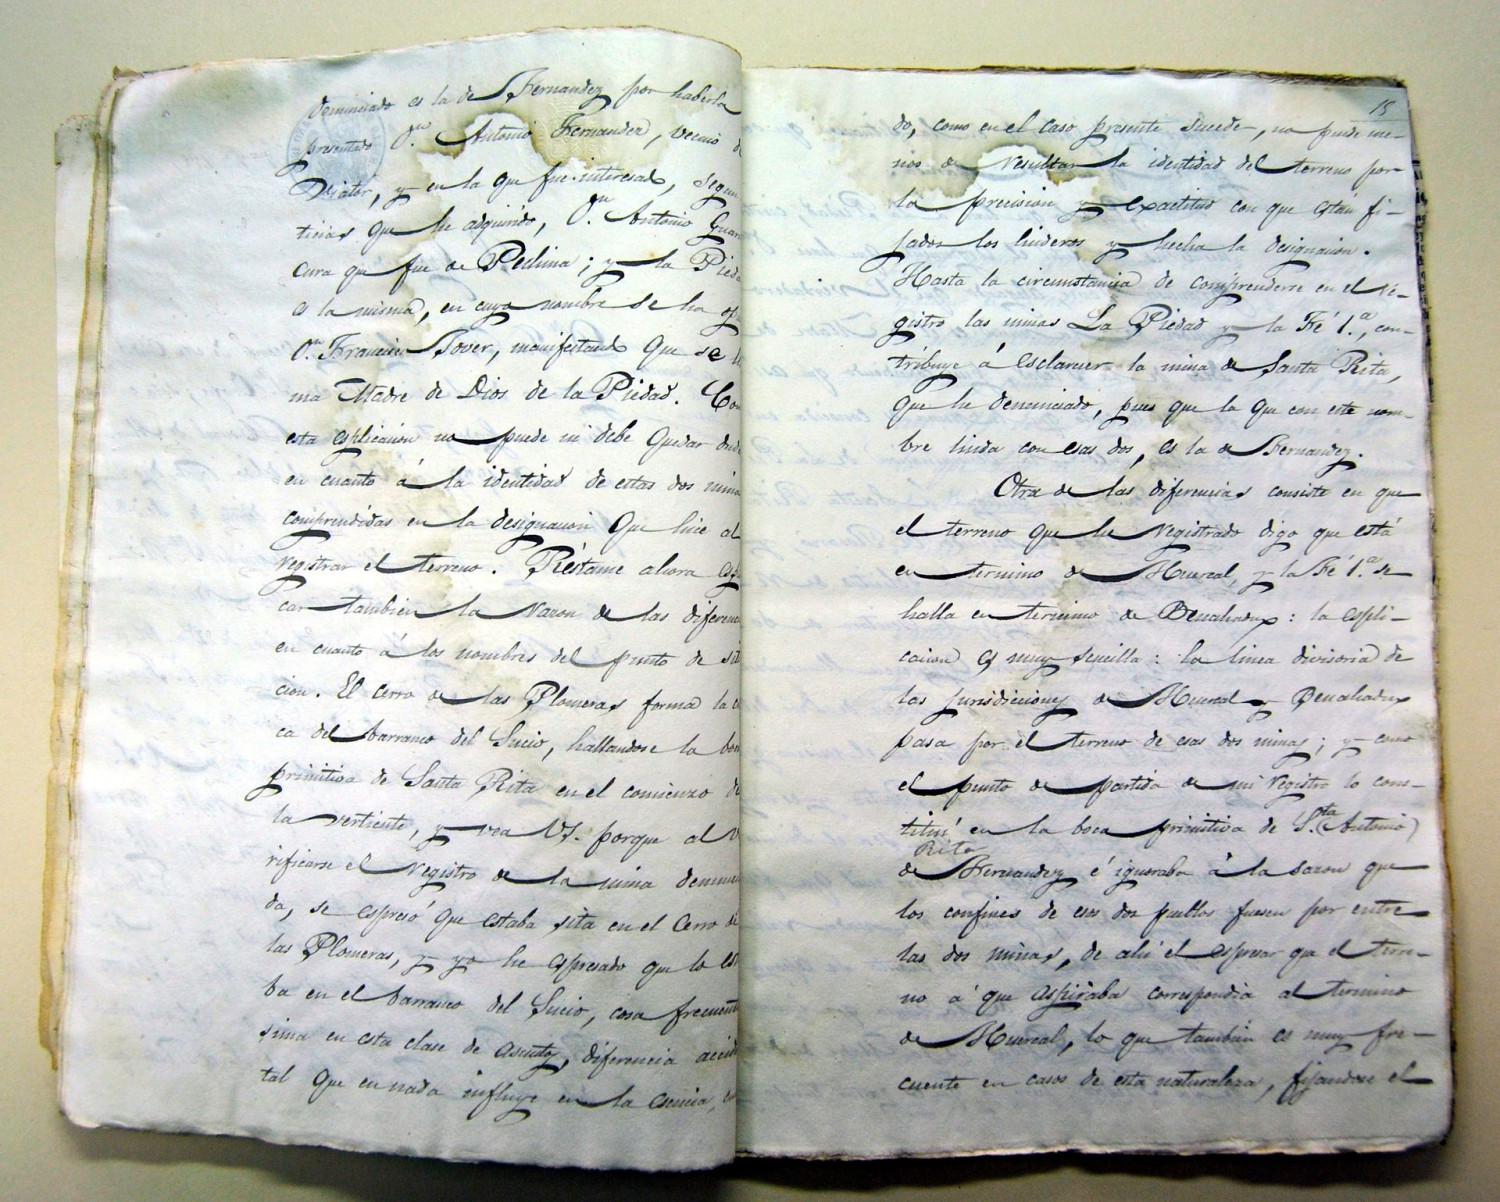 denunciado es la de Fernandez por haberla
presentado Dn. Antonio Fernandez, vecino d
Viator, y en la que fue interesado, segun
ticias que he adquirido, Dn. Antonio Guar
cura que fue de Pechina; y la Pieda
es la misma, en cuyo nombre se ha opu
Dn. Francisco Jover, manifestando que se
ma Madre de Dios de la Piedad. Con
esta esplicacion no puede ni debe quedar dud
en cuanto á la identidad de estas dos mina
comprendidas en la designacion que hice al
registrar el terreno. Réstame ahora espl
car tambien la razon de las diferenci
en cuanto á los nombres del punto de sit
cion. El cerro de las Plomeras forma la c
ca del barranco del Sucio, hallandose la bo
primitiva de Santa Rita en el comienzo de
la vertiente, y vea VS. porque al v
rificarse el registro de la mina denuncia
da, se espresó que estaba sita en el Cerro de
las Plomeras, y yo he espresado que lo est
ba en el barranco del Sucio, cosa frecuent
sima en esta clase de asuntos, diferencia accid
tal que en nada influye en la esencia,
15
do, como en el caso presente sucede, no puede me-
nos de resultar la identidad del terreno por
la precision y exactitud con que estan fi-
jados los linderos y hecha la designacion.
Hasta la circunstancia de comprenderse en el re-
gistro las minas La Piedad y la Fé 1.a, con-
tribuye á esclarecer la mina de Santa Rita,
que he denunciado, pues que la que con este nom-
bre linda con esas dos, es la de Fernandez.
Otra de las diferencias consiste en que
el terreno que he registrado digo que está
en termino de Huercal, y la Fé 1.a se
halla en termino de Benahadux: la espli-
cacion es muy sencilla: la linea divisoria de
las jurisdiciones de Huercal y Benahadux
pasa por el terreno de esas dos minas; y como
el punto de partida de mi registro lo cons-
tituí en la boca primitiva de S.ta (Antonio)
Rita
de Fernandez é ignoraba á la sazon que
los confines de esos dos pueblos fuesen por entre
las dos minas, de ahi el espresar que el terre-
no á que aspiraba correspondia al termino
de Huercal, lo que tambien es muy fre-
cuente en casos de esta naturaleza, fijandose el